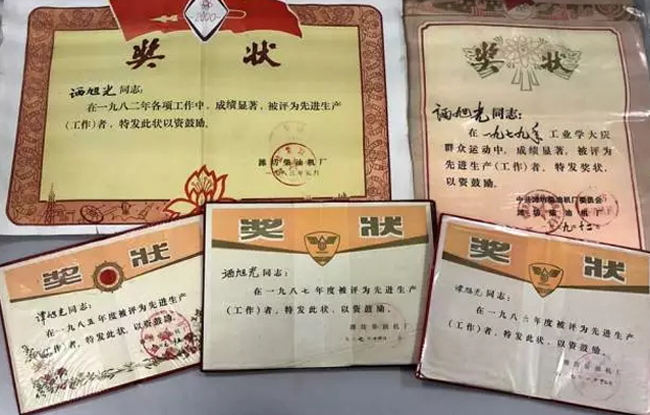 2000
奖状
谭旭光同志：
在一九八二年各项工作中，成绩显著，被评为先进生产
(工作)者，特发此状以资鼓励。
潍坊柴油机厂
奖状
谭旭光同志：
在一九七九年工业学大庆
群众运动中，成绩显著，被评为
先进生产(工作)者，特发奖状，
以资鼓励。
中共潍坊柴油机厂委员会
潍坊柴油机厂
奖状
谭旭光同志：
在一九八五年度被评为先进生产
(工作)者，特发此状，以资鼓励。
奖状
谭旭光同志：
在一九八七年度被评为先进生产
(工作)者，特发此状，以资鼓励。
潍坊柴油机厂
奖状
谭旭光同志：
在一九八六年度被评为先进生产
(工作)者，特发此状，以资鼓励。
潍坊柴油机厂